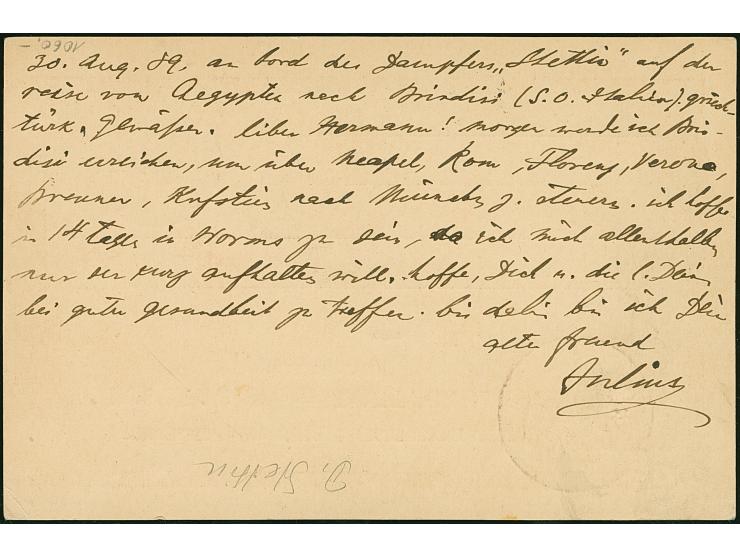 1060.-
30. Aug. 89, an bord des Dampfers „Stettin“ auf der
reise von Aegypten nach Brindisi (S. O. Italien). griech-
türk. Gewässer. lieber Hermann! morgen werde ich Brin-
disi erreichen, um über Neapel, Rom, Florenz, Verona,
Brenner, Kufstein nach München z. steuern. ich hoffe
in 14 tagen in Worms zu sein, da ich mich allenthalben
nur ser kurz aufhalten will. hoffe, Dich u. die l. Dein.
bei guter gesundheit zu treffen. bis dahin bin ich Dein
alter freund
Julius
D. Stettin